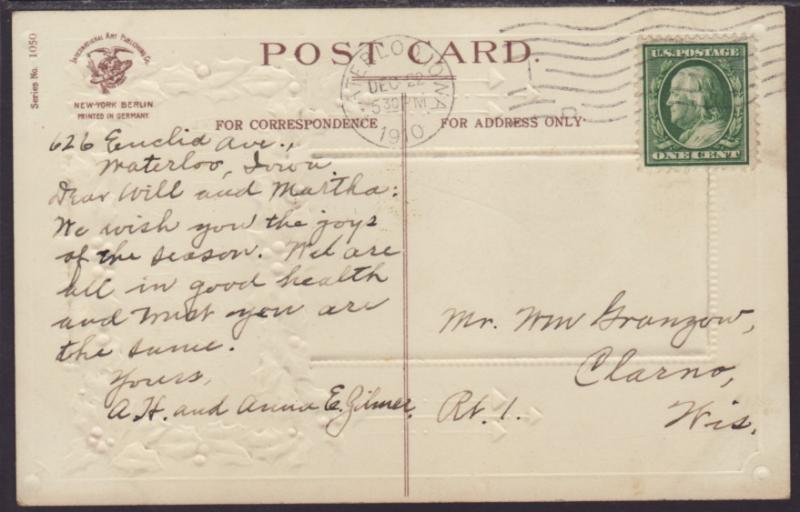 POST CARD.
Series No. 1050
International Art Publishing Co.
NEW-YORK BERLIN
PRINTED IN GERMANY.
WATERLOO, IOWA
DEC 22
530 PM
1910
U.S. POSTAGE
ONE CENT
FOR CORRESPONDENCE
FOR ADDRESS ONLY
626 Euclid Ave.,
Waterloo, Iowa
Dear Will and Martha:
We wish you the joys
of the season. We are
all in good health
and trust you are
the same.
Yours,
A.H. and Anna E. Gilmer.
Mr. Wm Granzow,
Clarno,
Rt. 1. Wis.